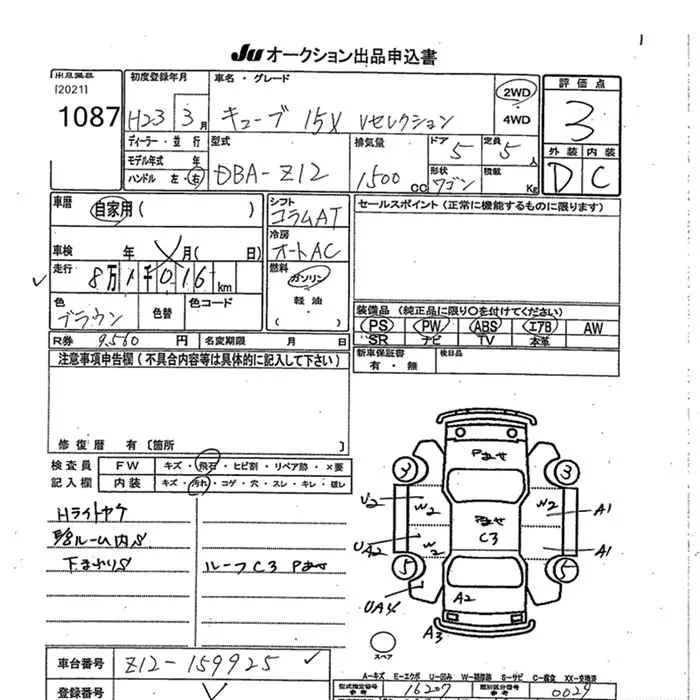 JU オークション出品申込書
[2021]
1087
初度登録年月
H23 3月
車名・グレード
キューブ 15X Vセレクション
2WD
4WD
評価点
3
外装 内装
D C
ディーラー・並行
モデル年式 年
ハンドル 左・右
型式
DBA-Z12
排気量
1500cc
ドア
5
定員
5人
形状
ワゴン
積載
Kg
車歴
自家用( )
車検 年 月( 日)
走行
8万 1千016km
色
ブラウン
色替
色コード
シフト
コラムAT
冷房
オートAC
燃料
ガソリン
軽油
( )
セールスポイント(正常に機能するものに限ります)
装備品(純正品に限り○を付けてください)
PS PW ABS エアB AW
SR ナビ TV 本革
R券 9,560円
名変期限 月 日
新車保証書
有・無
後日品
注意事項申告欄(不具合内容等は具体的に記入して下さい)
修復歴 有〔箇所 〕
検査員
記入欄
FW キズ・飛石・ヒビ割・リペア跡・×要
内装 キズ・汚れ・コゲ・穴・スレ・キレ・破レ
Hライトヤケ
ルーム内S
下まわりS
ルーフC3 Pあせ
Pあせ
3
U2
W2
W2
A1
Pあせ
C3
UA2
W2
A1
5
5
UA4
A2
A3
スペア
車台番号
Z12-159925
登録番号
A-キズ E-エクボ U-凹み W-補修跡 S-サビ C-腐食 XX-交換済
型式指定番号
16207
類別区分番号
0029